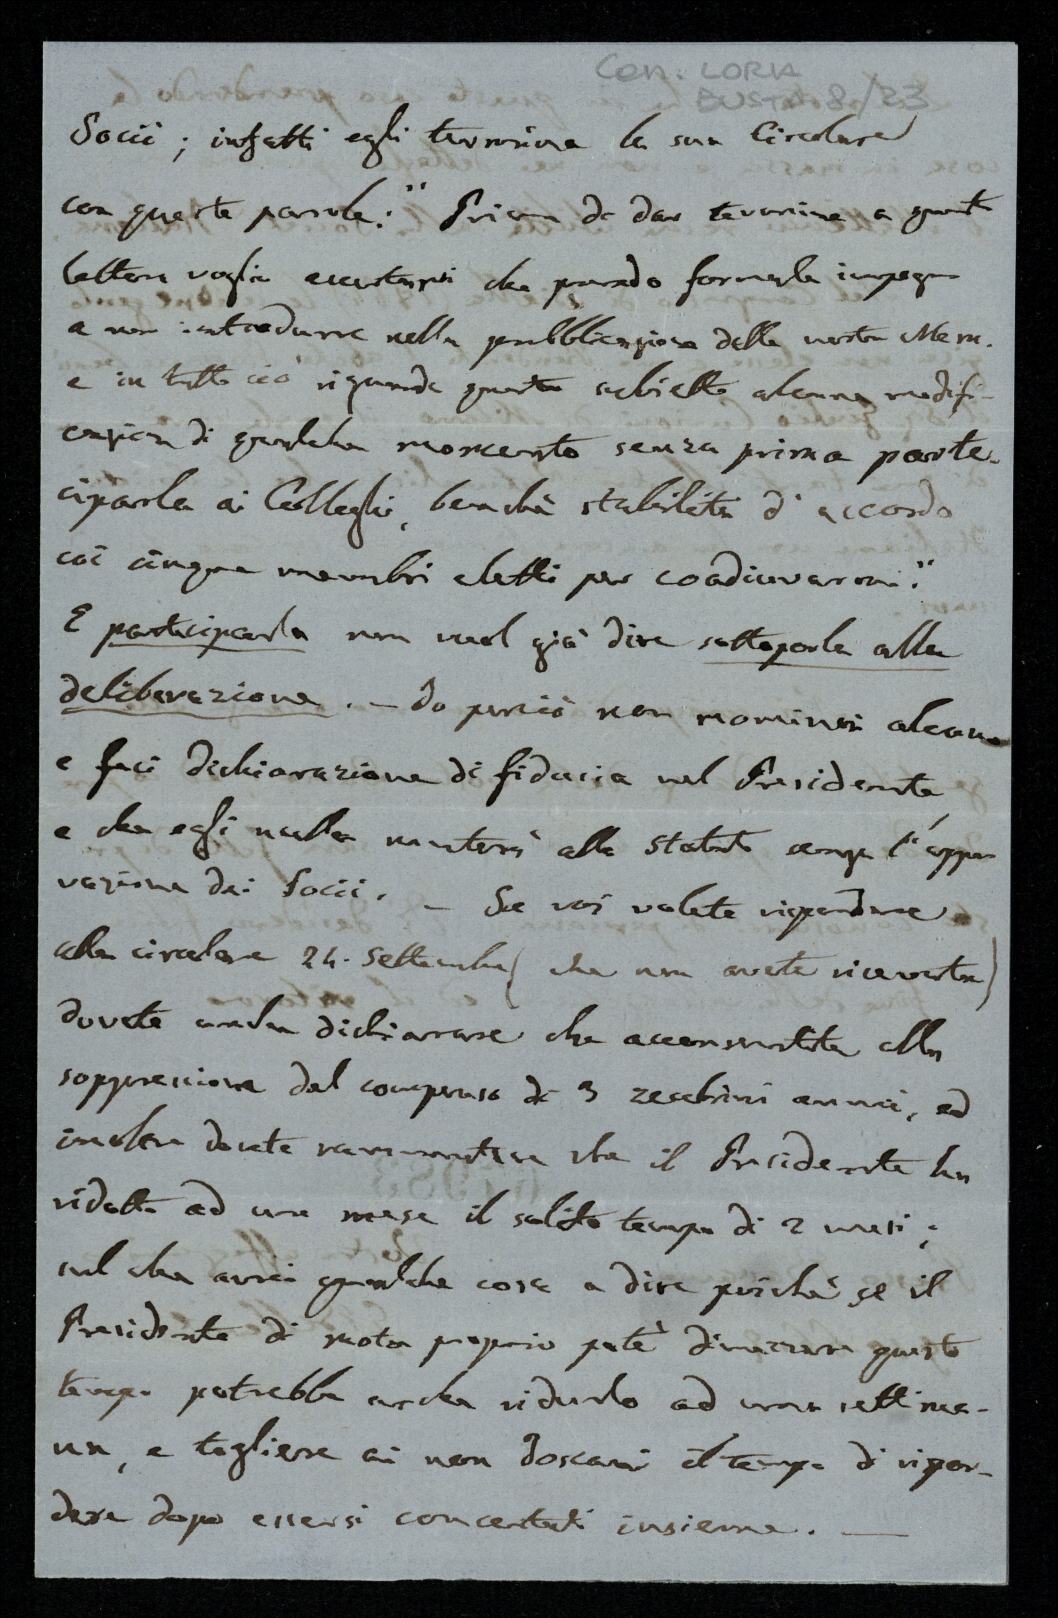 Cen. LORIA
BUSTA 8/23
Socii; infatti egli termina la sua Circolare
con queste parole: " Prima di dar termine a questa
lettera voglio accertarvi che prendo formale impegno
a non introdurre nella pubblicazione delle nostre Mem.
e in tutto ciò riguarda questo subietto alcuna modifi-
cazion di qualche momento senza prima parte-
ciparla ai Colleghi, benchè stabilita d'accordo
coi cinque membri eletti per coadiuvarmi."
E participarla non vuol già dire sottoporla alla
deliberazione. — Io perciò non nominai alcuno
e feci dichiarazione di fiducia nel Presidente
e che egli nulla muterà allo Statuto senza l'appro
vazione dei Socii. — Se voi volete rispondere
alla circolare 24. Settembre (che non avete ricevuta)
dovete anche dichiarare che acconsentite alla
soppressione del compenso di 3 zecchini annui, ed
inoltre dovete rammentare che il Presidente ha
ridotto ad un mese il solito tempo di 2 mesi;
sul che avrei qualche cosa a dire poichè se il
Presidente di moto proprio potè dimezzare questo
tempo potrebbe anche ridurlo ad una settima-
na, e togliere ai non Toscani il tempo di rispon-
dere dopo essersi concertati insieme. —